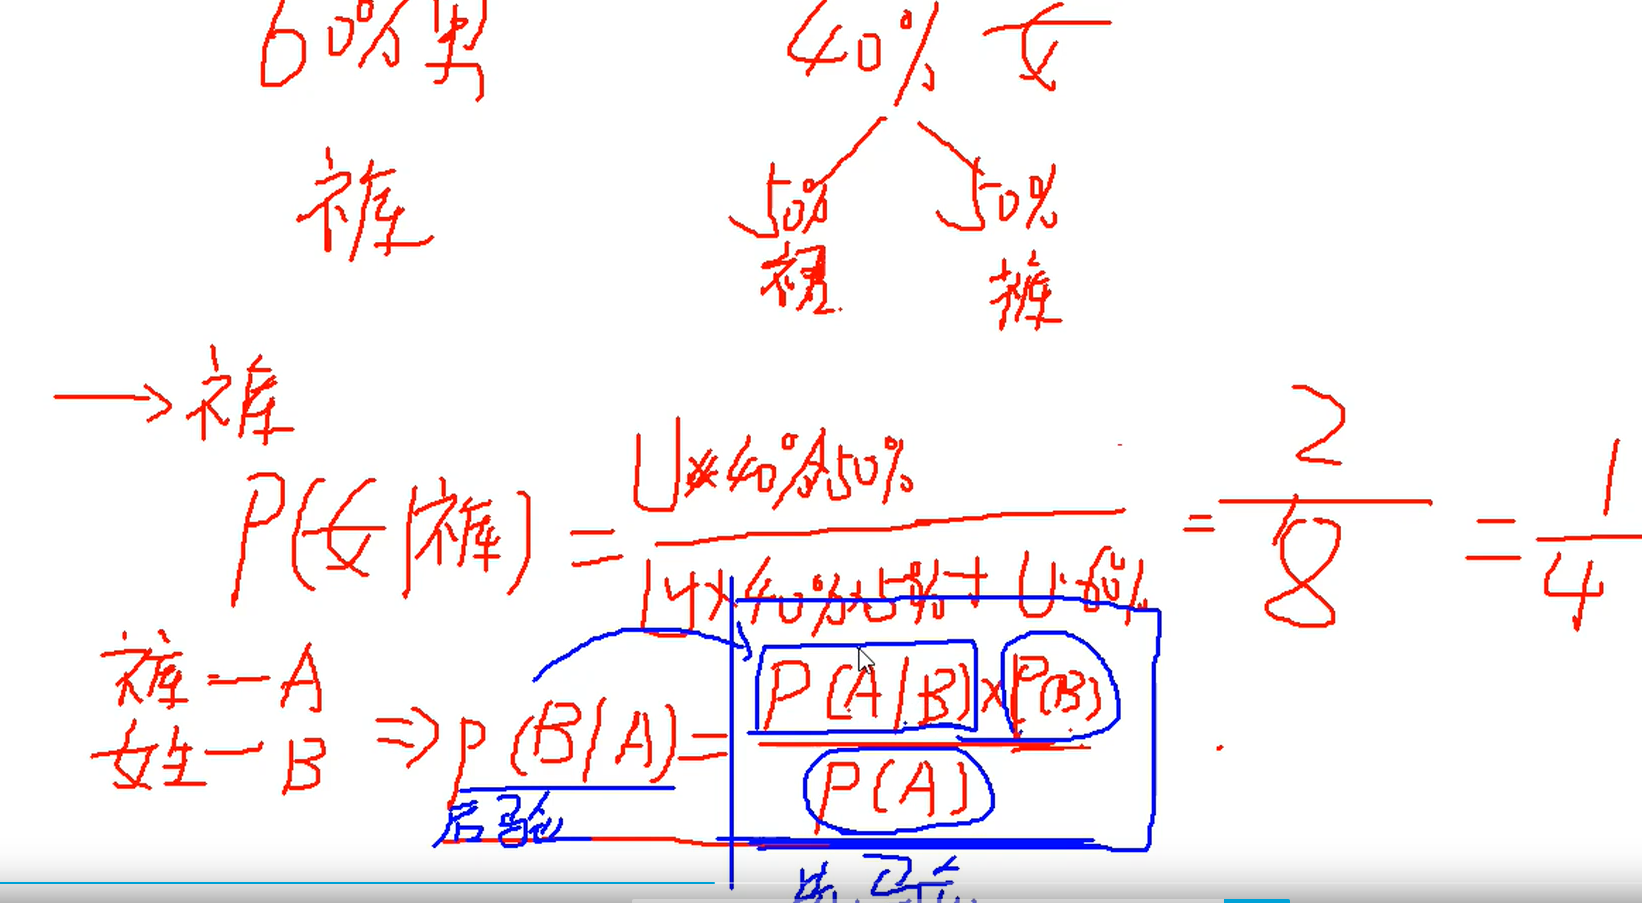 60%男 40%女
裤 50% 50%
裙 裤
→裤
P(女|裤) = U×40%×50% / U×40%×50%+U·60% = 2/8 = 1/4
裤—A
女生—B ⇒ P(B|A) = P(A|B)×P(B) / P(A)
后验
先验